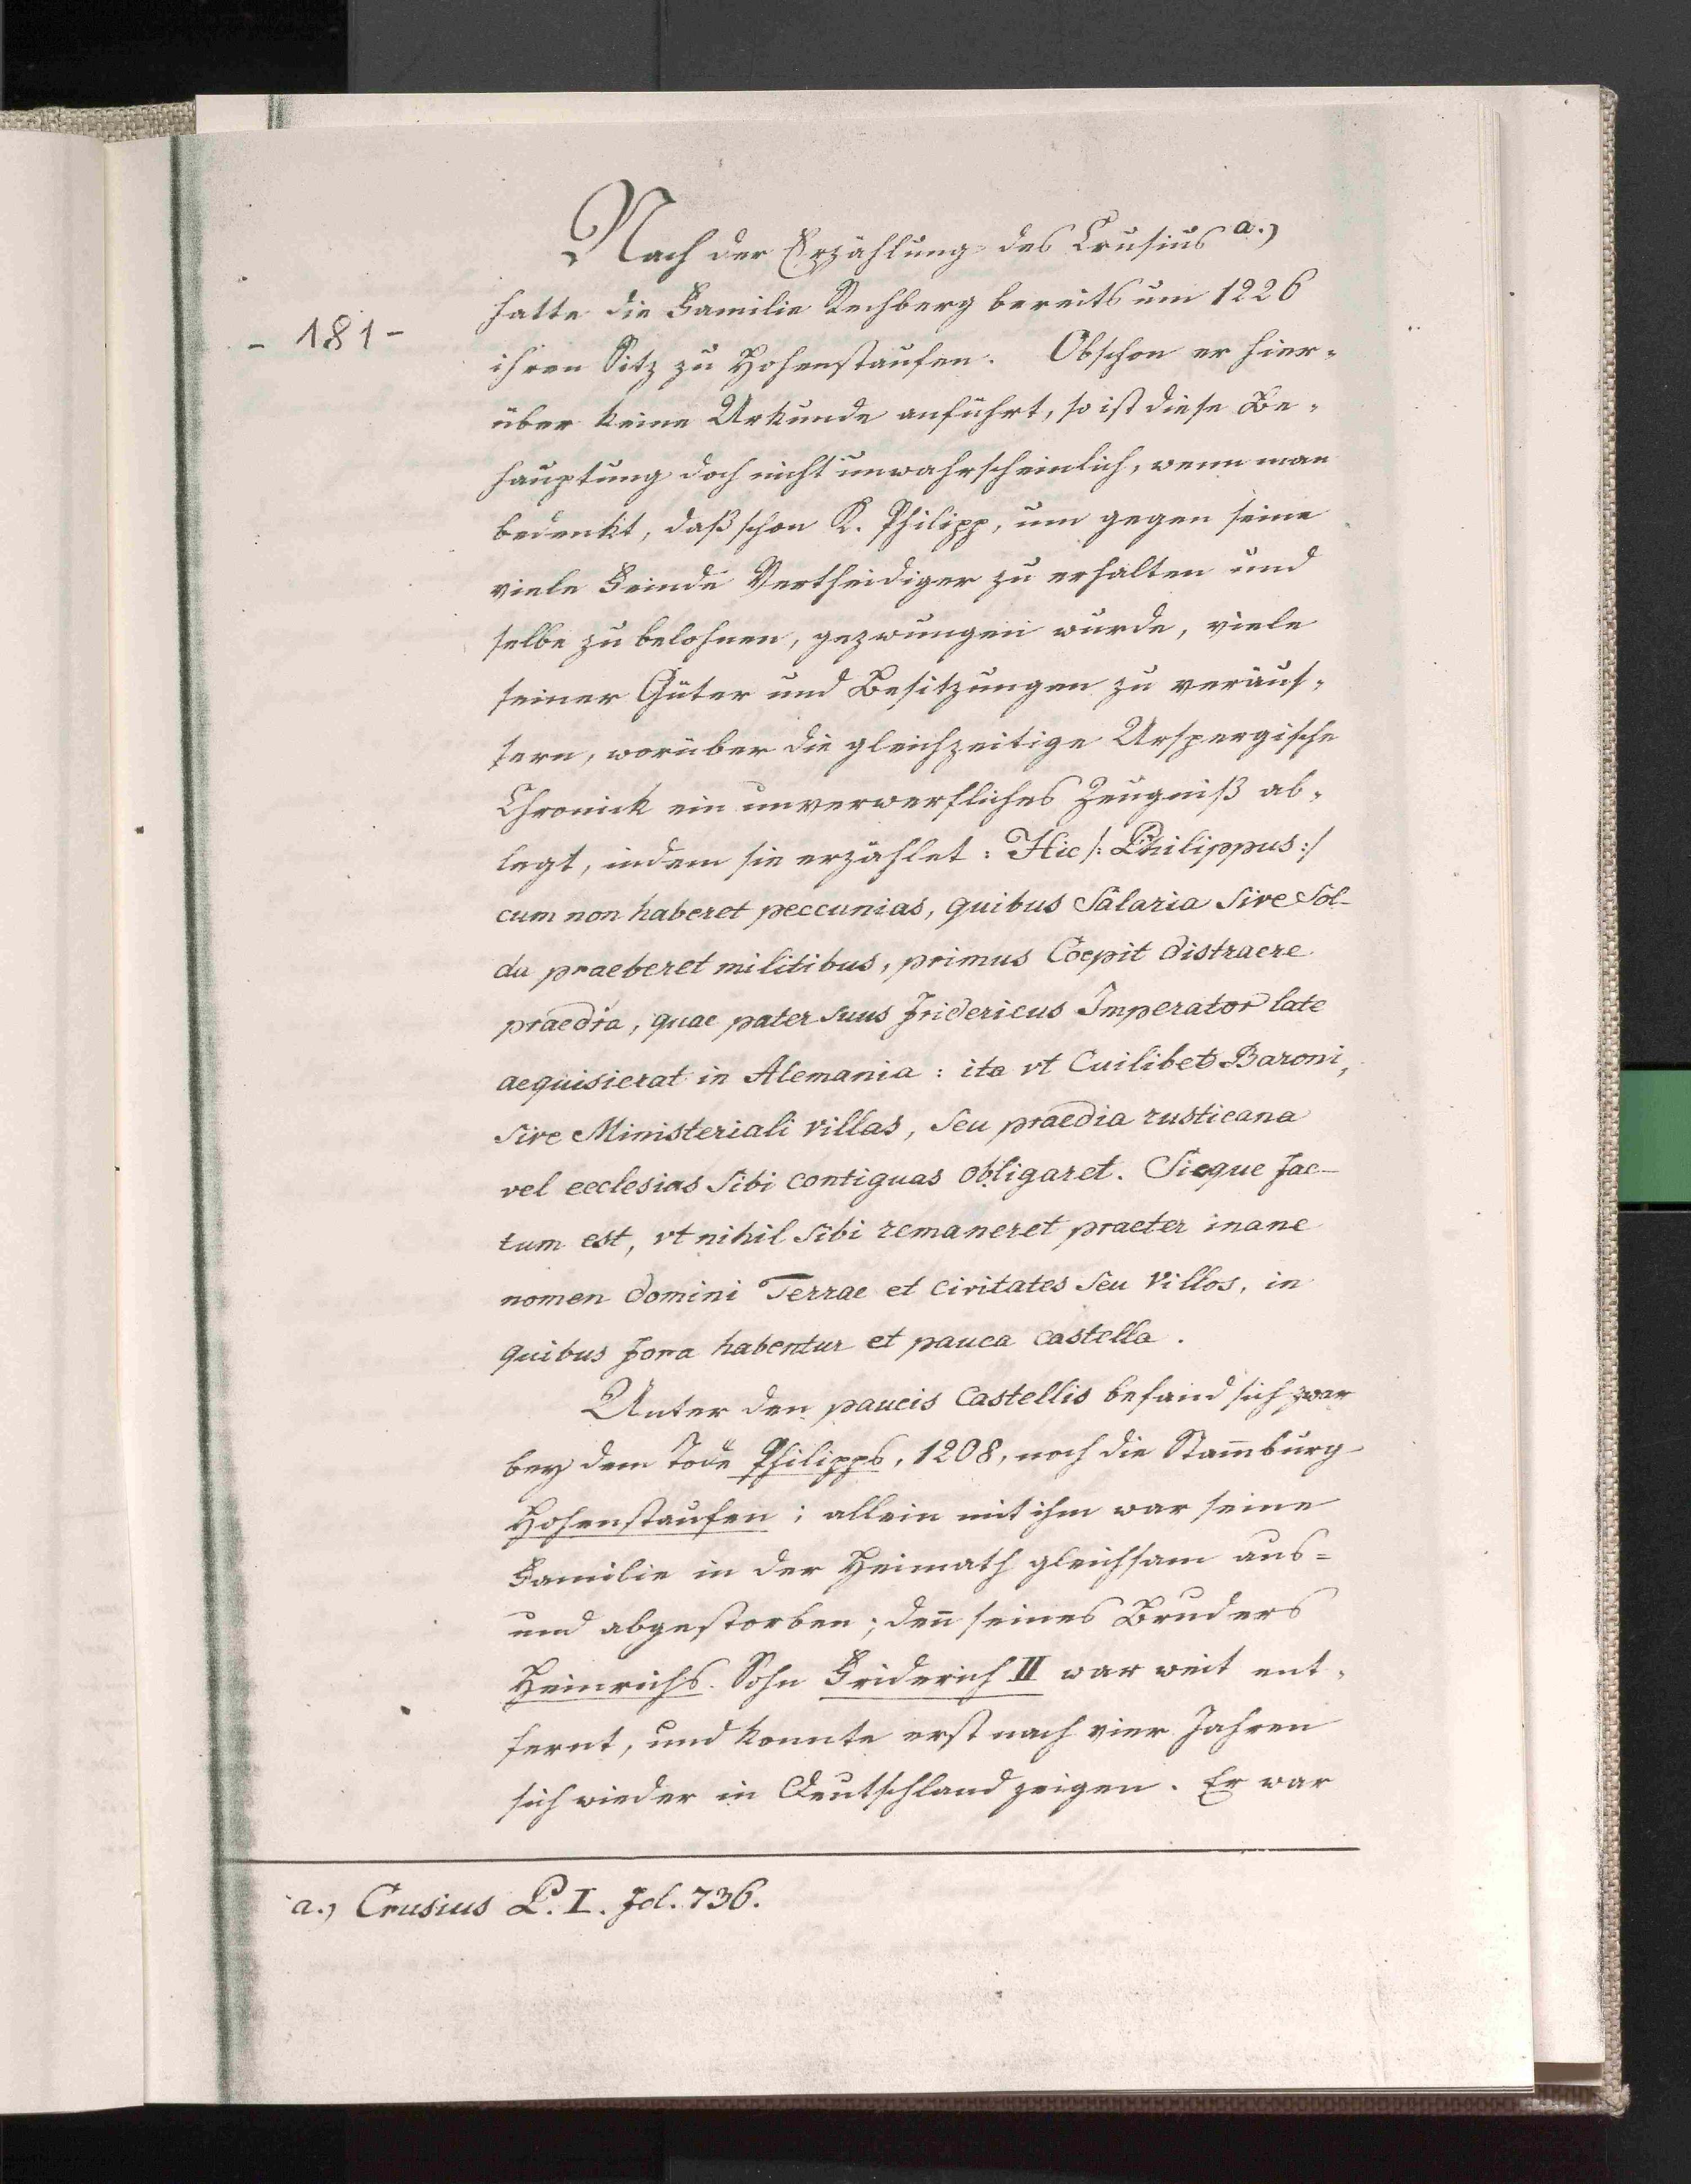 Nach der Erzählung des Crusius a.)
hatte die Familie Rechberg bereits um 1226
- 181 -
ihren Sitz zu Hohenstaufen. Obschon er hier-
über keine Urkunde anführt, so ist diese Be-
hauptung doch nicht unwahrscheinlich, wenn man
bedenkt, daß schon K. Philipp, um gegen seine
viele Feinde Vertheidiger zu erhalten und
selbe zu belohnen, gezwungen wurde, viele
seiner Güter und Besitzungen zu veräus-
sern, worüber die gleichzeitige Urspergische
Chronick ein unverwerfliches Zeugniß ab-
legt, indem sie erzählet: Hic /: Philippus :/
cum non haberet peccunias, quibus Salaria sive Sol-
da praeberet militibus, primus Coepit distraere
praedia, quae pater suus Fridericus Imperator late
aequisierat in Alemania: ita vt Cuilibet Baroni,
sive Ministeriali villas, seu praedia rusticana
vel ecclesias sibi contiguas obligaret. Sicque fac-
tum est, vt nihil sibi remaneret praeter inane
nomen domini Terrae et civitates seu Villos, in
quibus fora habentur et pauca castella.
Unter den paucis Castellis befand sich zwar
bey dem Tode Philipps, 1208, noch die Stam̄burg
Hohenstaufen; allein mit ihm war seine
Familie in der Heimath gleichsam aus-
und abgestorben; den̄ seines Bruders
Heinrichs Sohn Friderich II war weit ent-
fernt, und konnte erst nach vier Jahren
sich wieder in Deutschland zeigen. Er war
a.) Crusius P. I. fol. 736.